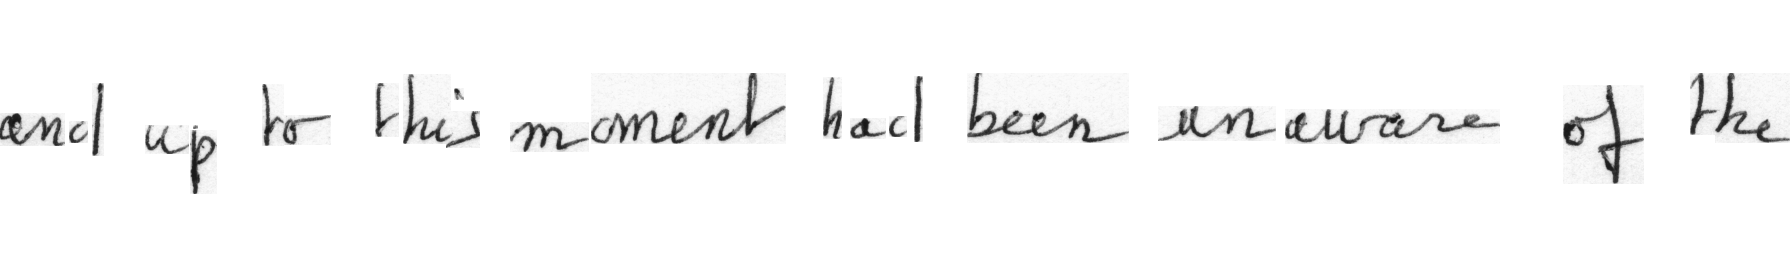 and up to this moment had been unaware of the